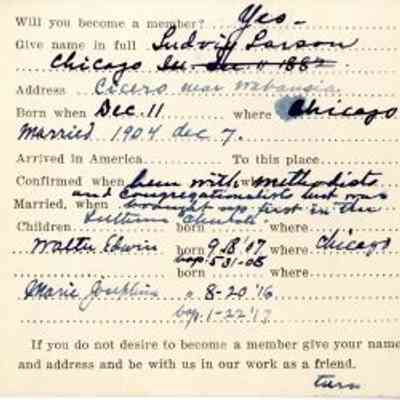 Will you become a member? Yes -
Give name in full Ludvig Larson
Chicago Ill. Dec 11 1882
Address Cicero near Wabansia
Born when Dec. 11 where Chicago
Married 1904 dec 7.
Arrived in America To this place
Confirmed when been with where methodists
and Congregationalists but was
Married, when brought up first in the
Lutheran Church
Children born where
Walter Edwin born 9-18 '07 where Chicago
bap. 5-31-08
born where
Marie Josephine " 8-20 '16
bap. 1-22 '17
If you do not desire to become a member give your name
and address and be with us in our work as a friend.
turn